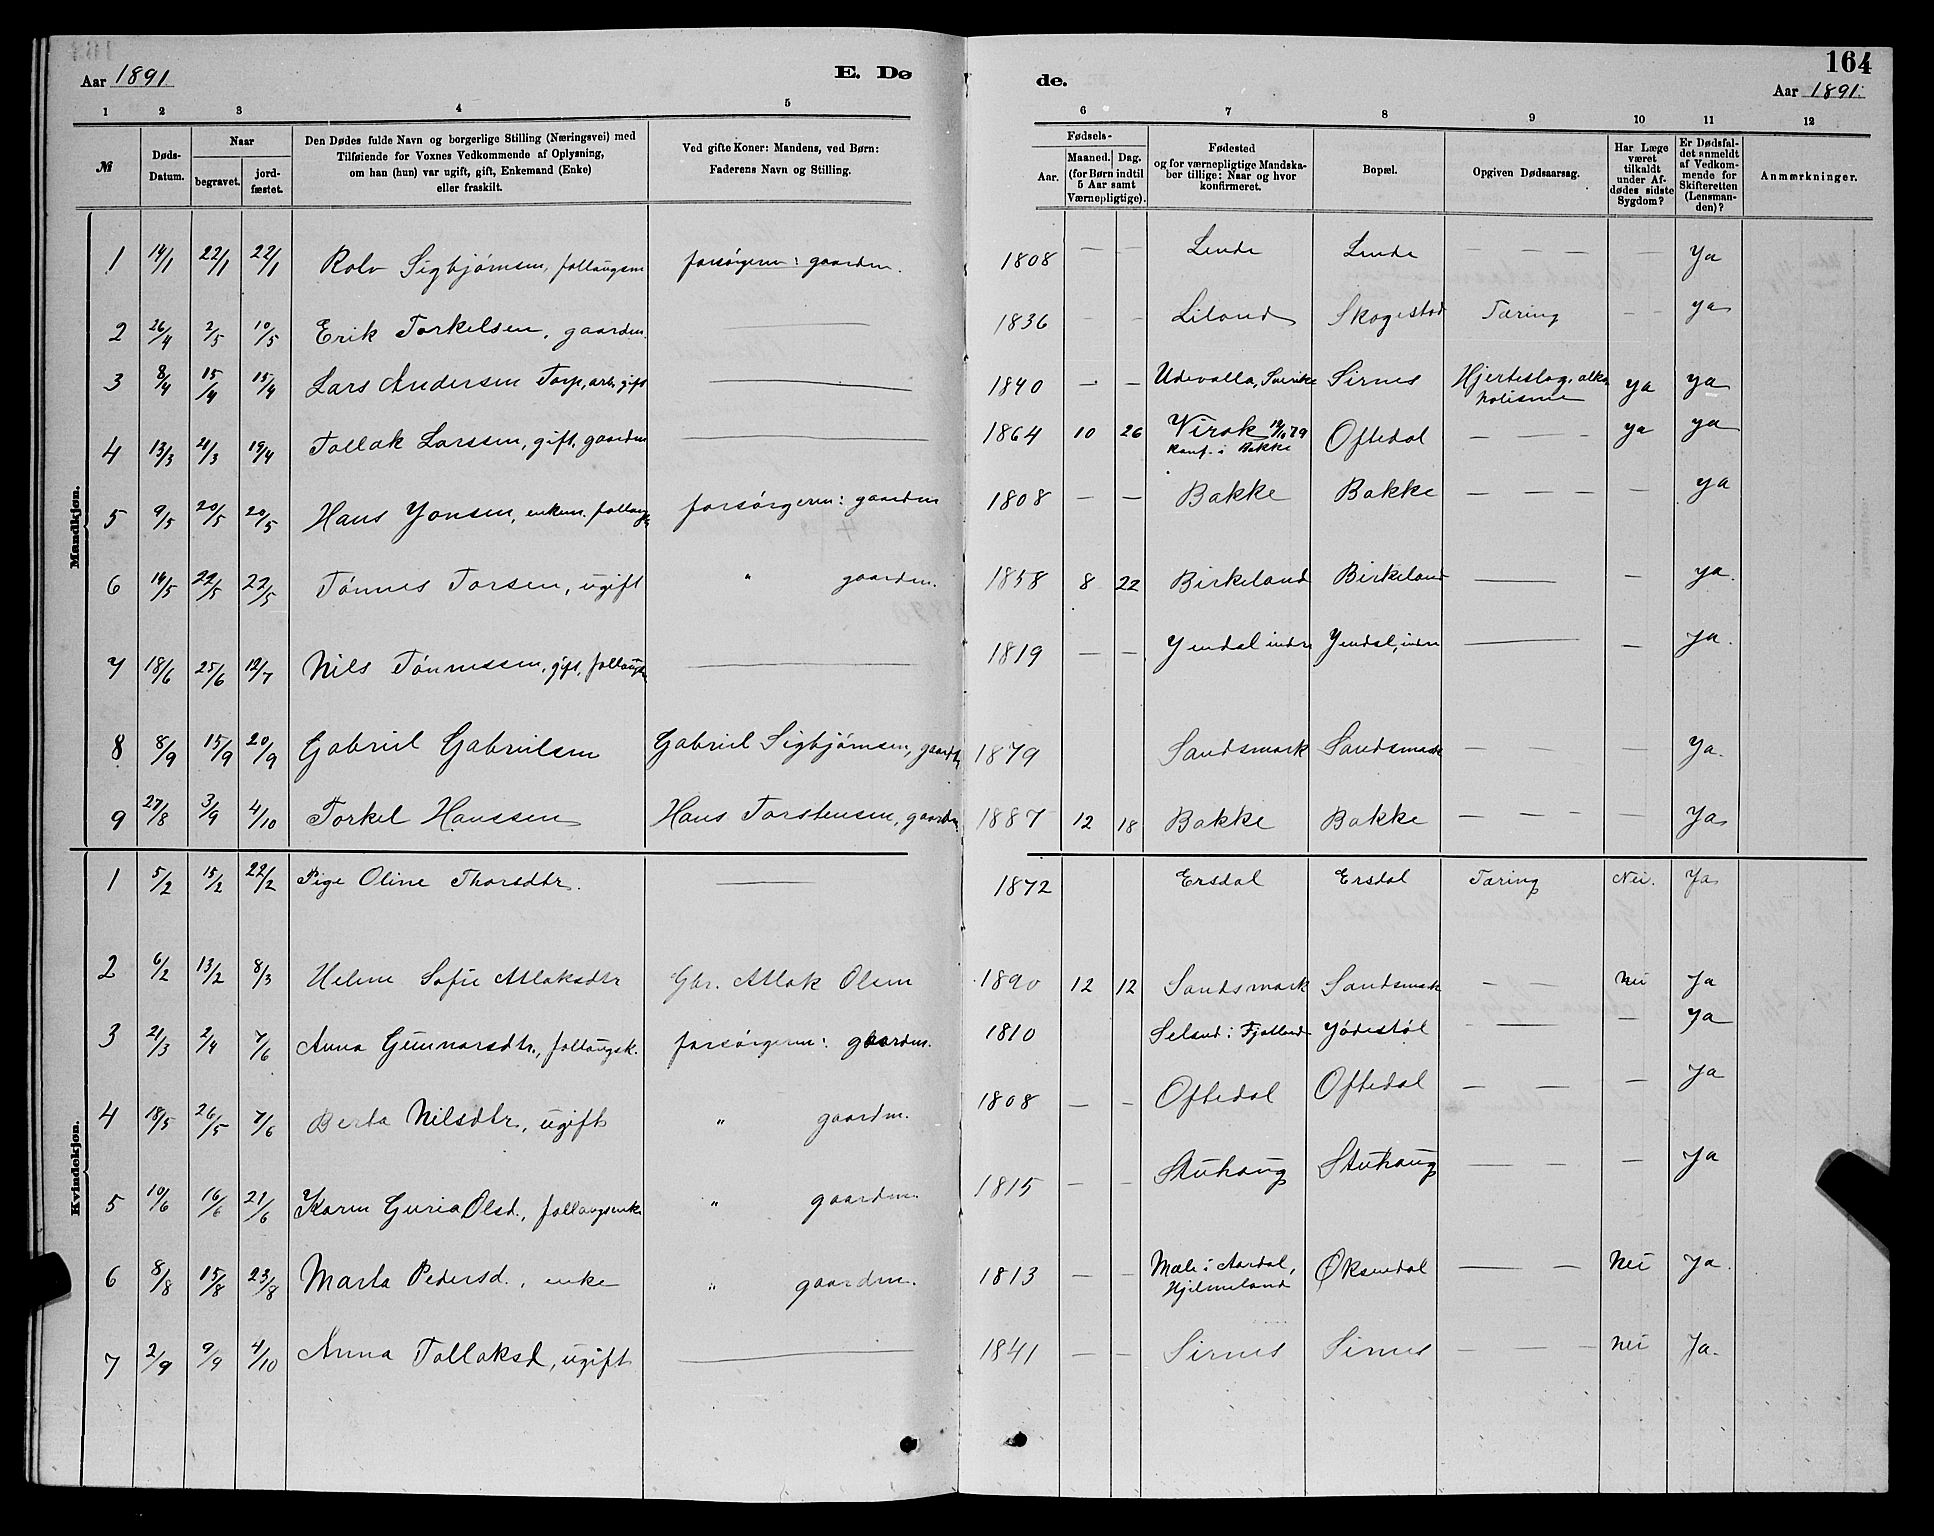 164
Aar 1891. E. Dø de. Aar 1891.
1 2 3 4 5 6 7 8 9 10 11 12
№ Døds-Datum. Naar begravet. jord-fæstet. Den Dødes fulde Navn og borgerlige Stilling (Næringsvei) med Tilføiende for Voxnes Vedkommende af Oplysning, om han (hun) var ugift, gift, Enkemand (Enke) eller fraskilt. Ved gifte Koner: Mandens, ved Børn: Faderens Navn og Stilling. Fødsels- Aar. Maaned. Dag. (for Børn indtil 5 Aar samt Værnepligtige). Fødested og for værnepligtige Mandska-ber tillige: Naar og hvor konfirmeret. Bopæl. Opgiven Dødsaarsag. Har Læge været tilkaldt under Af-dødes sidste Sygdom? Er Dødsfal-det anmeldt af Vedkom-mende for Skifteretten (Lensman-den)? Anmærkninger.
Mandkjøn.
1 14/1 22/1 22/1 Rolv Sigbjørnsen, follaugsm forsørgerm: gaardm. 1808 — — Linde Linde — — — — Ya
2 26/4 2/5 10/5 Erik Torkelsen, gaardm. — 1836 - - Liland Skogestad Tæring - - ya
3 8/4 15/4 15/4 Lars Andersen Torp, arb, gift — 1840 — — Udevalla, Sverike Sirnes Hjerteslag, alko holisme ya ya
4 13/3 21/3 19/4 Tollak Larssen, gift, gaardm — 1864 10 26 Virak 12/10 79 konf. i Bakke Oftedal — — — ya ya
5 9/5 20/5 20/5 Hans Yonsen, enkem. follaugsm forsørgerm: gaardm 1808 — — Bakke Bakke — — — — ya
6 14/5 22/5 22/5 Tønnes Torsen, ugift " gaardm. 1858 8 22 Birkeland Birkeland — — ya.
7 18/6 25/6 12/7 Nils Tønnessen, gift, follaugsm — 1819 — — Yendal indre Yendal, indre — — Ja.
8 8/9 15/9 20/9 Gabriel Gabrielsen Gabriel Sigbjørnsen, gaardm 1879 Sandsmark Sandsmark — — Ya.
9 27/8 3/9 4/10 Torkel Hanssen Hans Torstensen, gaardm. 1887 12 18 Bakke Bakke — — — — Ya
Kvindekjøn.
1 5/2 15/2 22/2 Pige Oline Thorsdtr. — 1872 Ersdal Ersdal Tæring Nei. Ja
2 6/2 13/2 8/3 Helene Sofie Atlaksdtr Gbr. Atlak Olsen 1890 12 12 Sandsmark Sandsmark — — Nei Ja
3 21/3 2/4 7/6 Anna Gunnarsdtr., follaugsk. forsørgerm: gaardm. 1810 Seland i Fjotland Yødestøl — — — Ya
4 18/5 26/5 7/6 Berta Nilsdtr., ugift " gaardm. 1808 — — Oftedal Oftedal — — — Ya
5 10/6 16/6 21/6 Karen Guria Olsd., follaugsenke " gaardm. 1815 — — Stuhaug Stuhaug — — — Ja
6 8/8 15/8 23/8 Marta Pedersd., enke " gaardm. 1813 — — Mæle i Aardal, Hjelmeland Øksendal — — Nei Ja.
7 2/9 9/9 4/10 Anna Tollaksd, ugift — 1841 — — Sirnes Sirnes — — — Nei Ja.